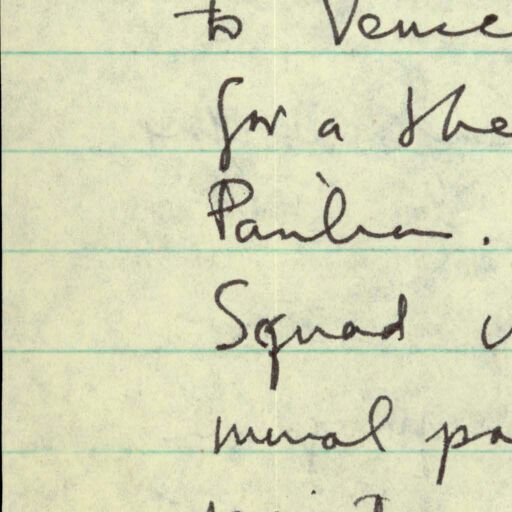 to Venice
for a the
Pavilion.
Squad
mural pa